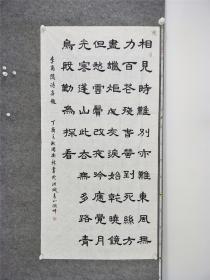 相見時難別亦難東風無
力百花殘春蠶到死絲方
盡蠟炬成灰淚始乾曉鏡
但愁雲鬢改夜吟應覺月
光寒蓬山此去無多路青
鳥殷勤為探看
李商隱詩無題
丁酉之秋